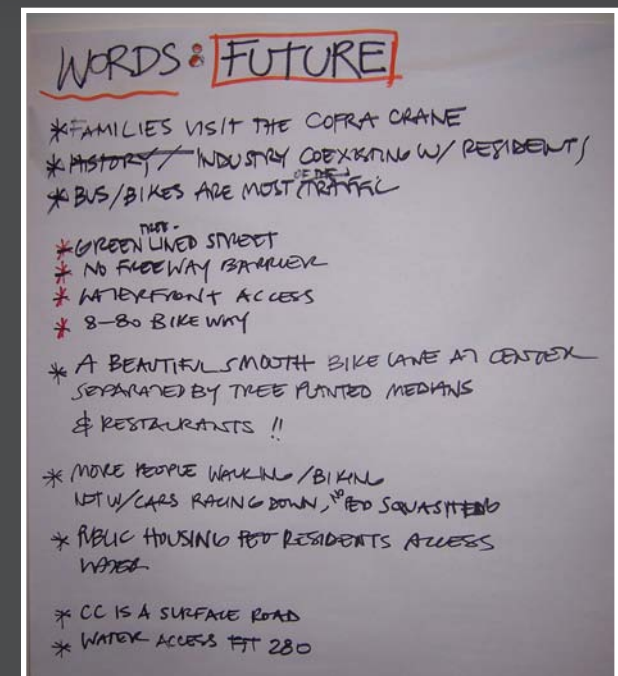 WORDS: FUTURE
* FAMILIES VISIT THE COPRA CRANE
* HISTORY / INDUSTRY COEXISTING W/ RESIDENTS
OF THE
* BUS/BIKES ARE MOST TRAFFIC
TREE-
* GREEN LINED STREET
* NO FREEWAY BARRIER
* WATERFRONT ACCESS
* 8-80 BIKEWAY
* A BEAUTIFUL SMOOTH BIKE LANE AT CENTER
SEPARATED BY TREE PLANTED MEDIANS
& RESTAURANTS !!
* MORE PEOPLE WALKING/BIKING
NOT W/CARS RACING DOWN, NO PED SQUASHED
* PUBLIC HOUSING RESIDENTS ACCESS
WATER
* CC IS A SURFACE ROAD
* WATER ACCESS 280